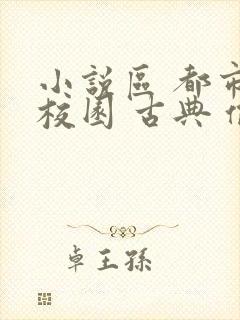 小說區 都市
校園 古典
卓王孫